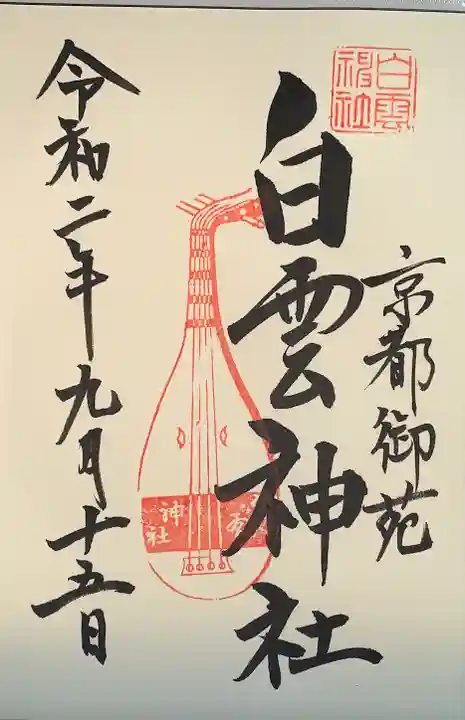 京都御苑
白雲神社
白雲
神社
令和二年九月十五日
神社